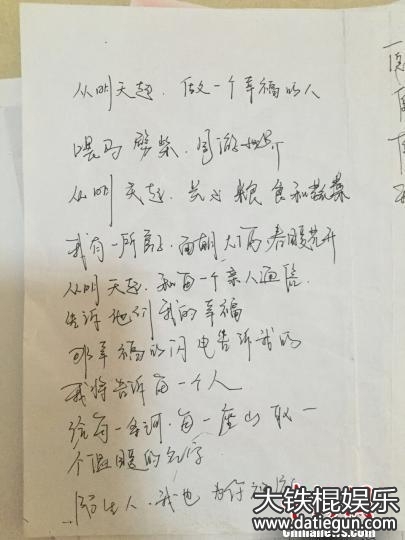 从明天起，做一个幸福的人
喂马 劈柴，周游世界
从明天起，关心粮食和蔬菜
我有一所房子，面朝大海，春暖花开
从明天起，和每一个亲人通信，
告诉他们我的幸福
那幸福的闪电告诉我的
我将告诉每一个人
给每一条河，每一座山取一
个温暖的名字
陌生人，我也为你祝
大铁棍娱乐
www.datiegun.com
Chinanews.com